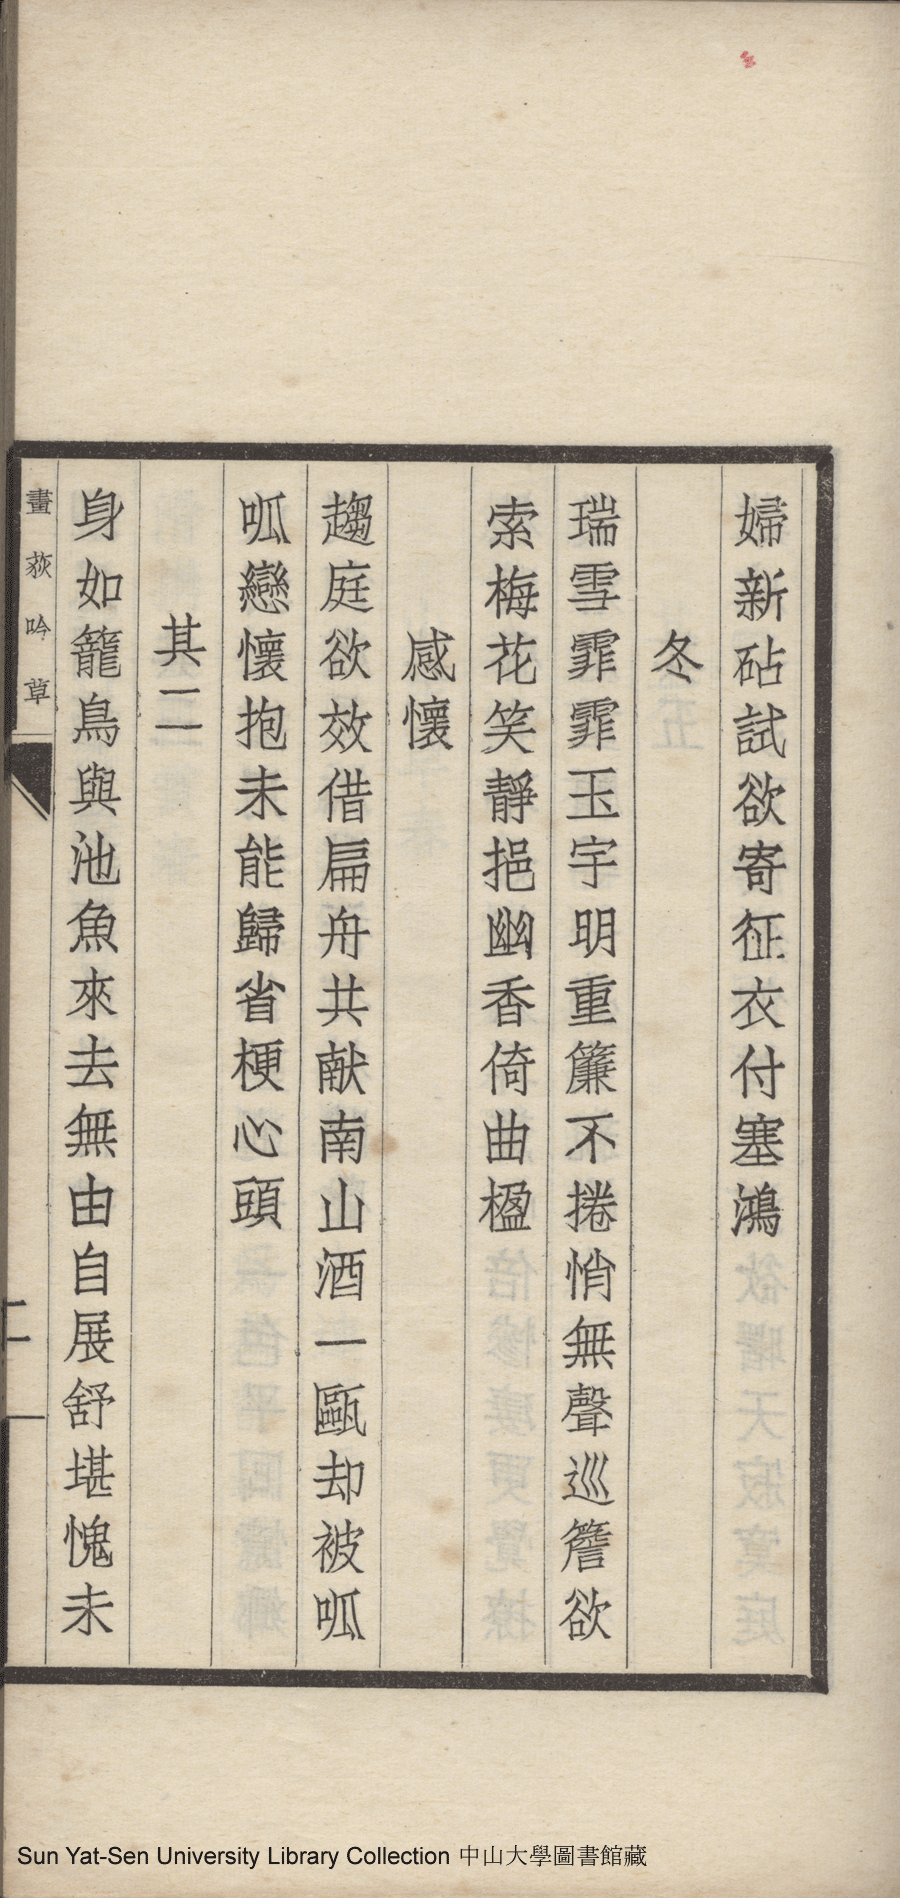 婦新砧試欲寄征衣付塞鴻
冬
瑞雪霏霏玉宇明重簾不捲悄無聲巡簷欲
索梅花笑靜挹幽香倚曲楹
感懷
趨庭欲效借扁舟共献南山酒一甌却被呱
呱戀懷抱未能歸省梗心頭
其二
身如籠鳥與池魚來去無由自展舒堪愧未
畫荻吟草
二
Sun Yat-Sen University Library Collection 中山大學圖書館藏